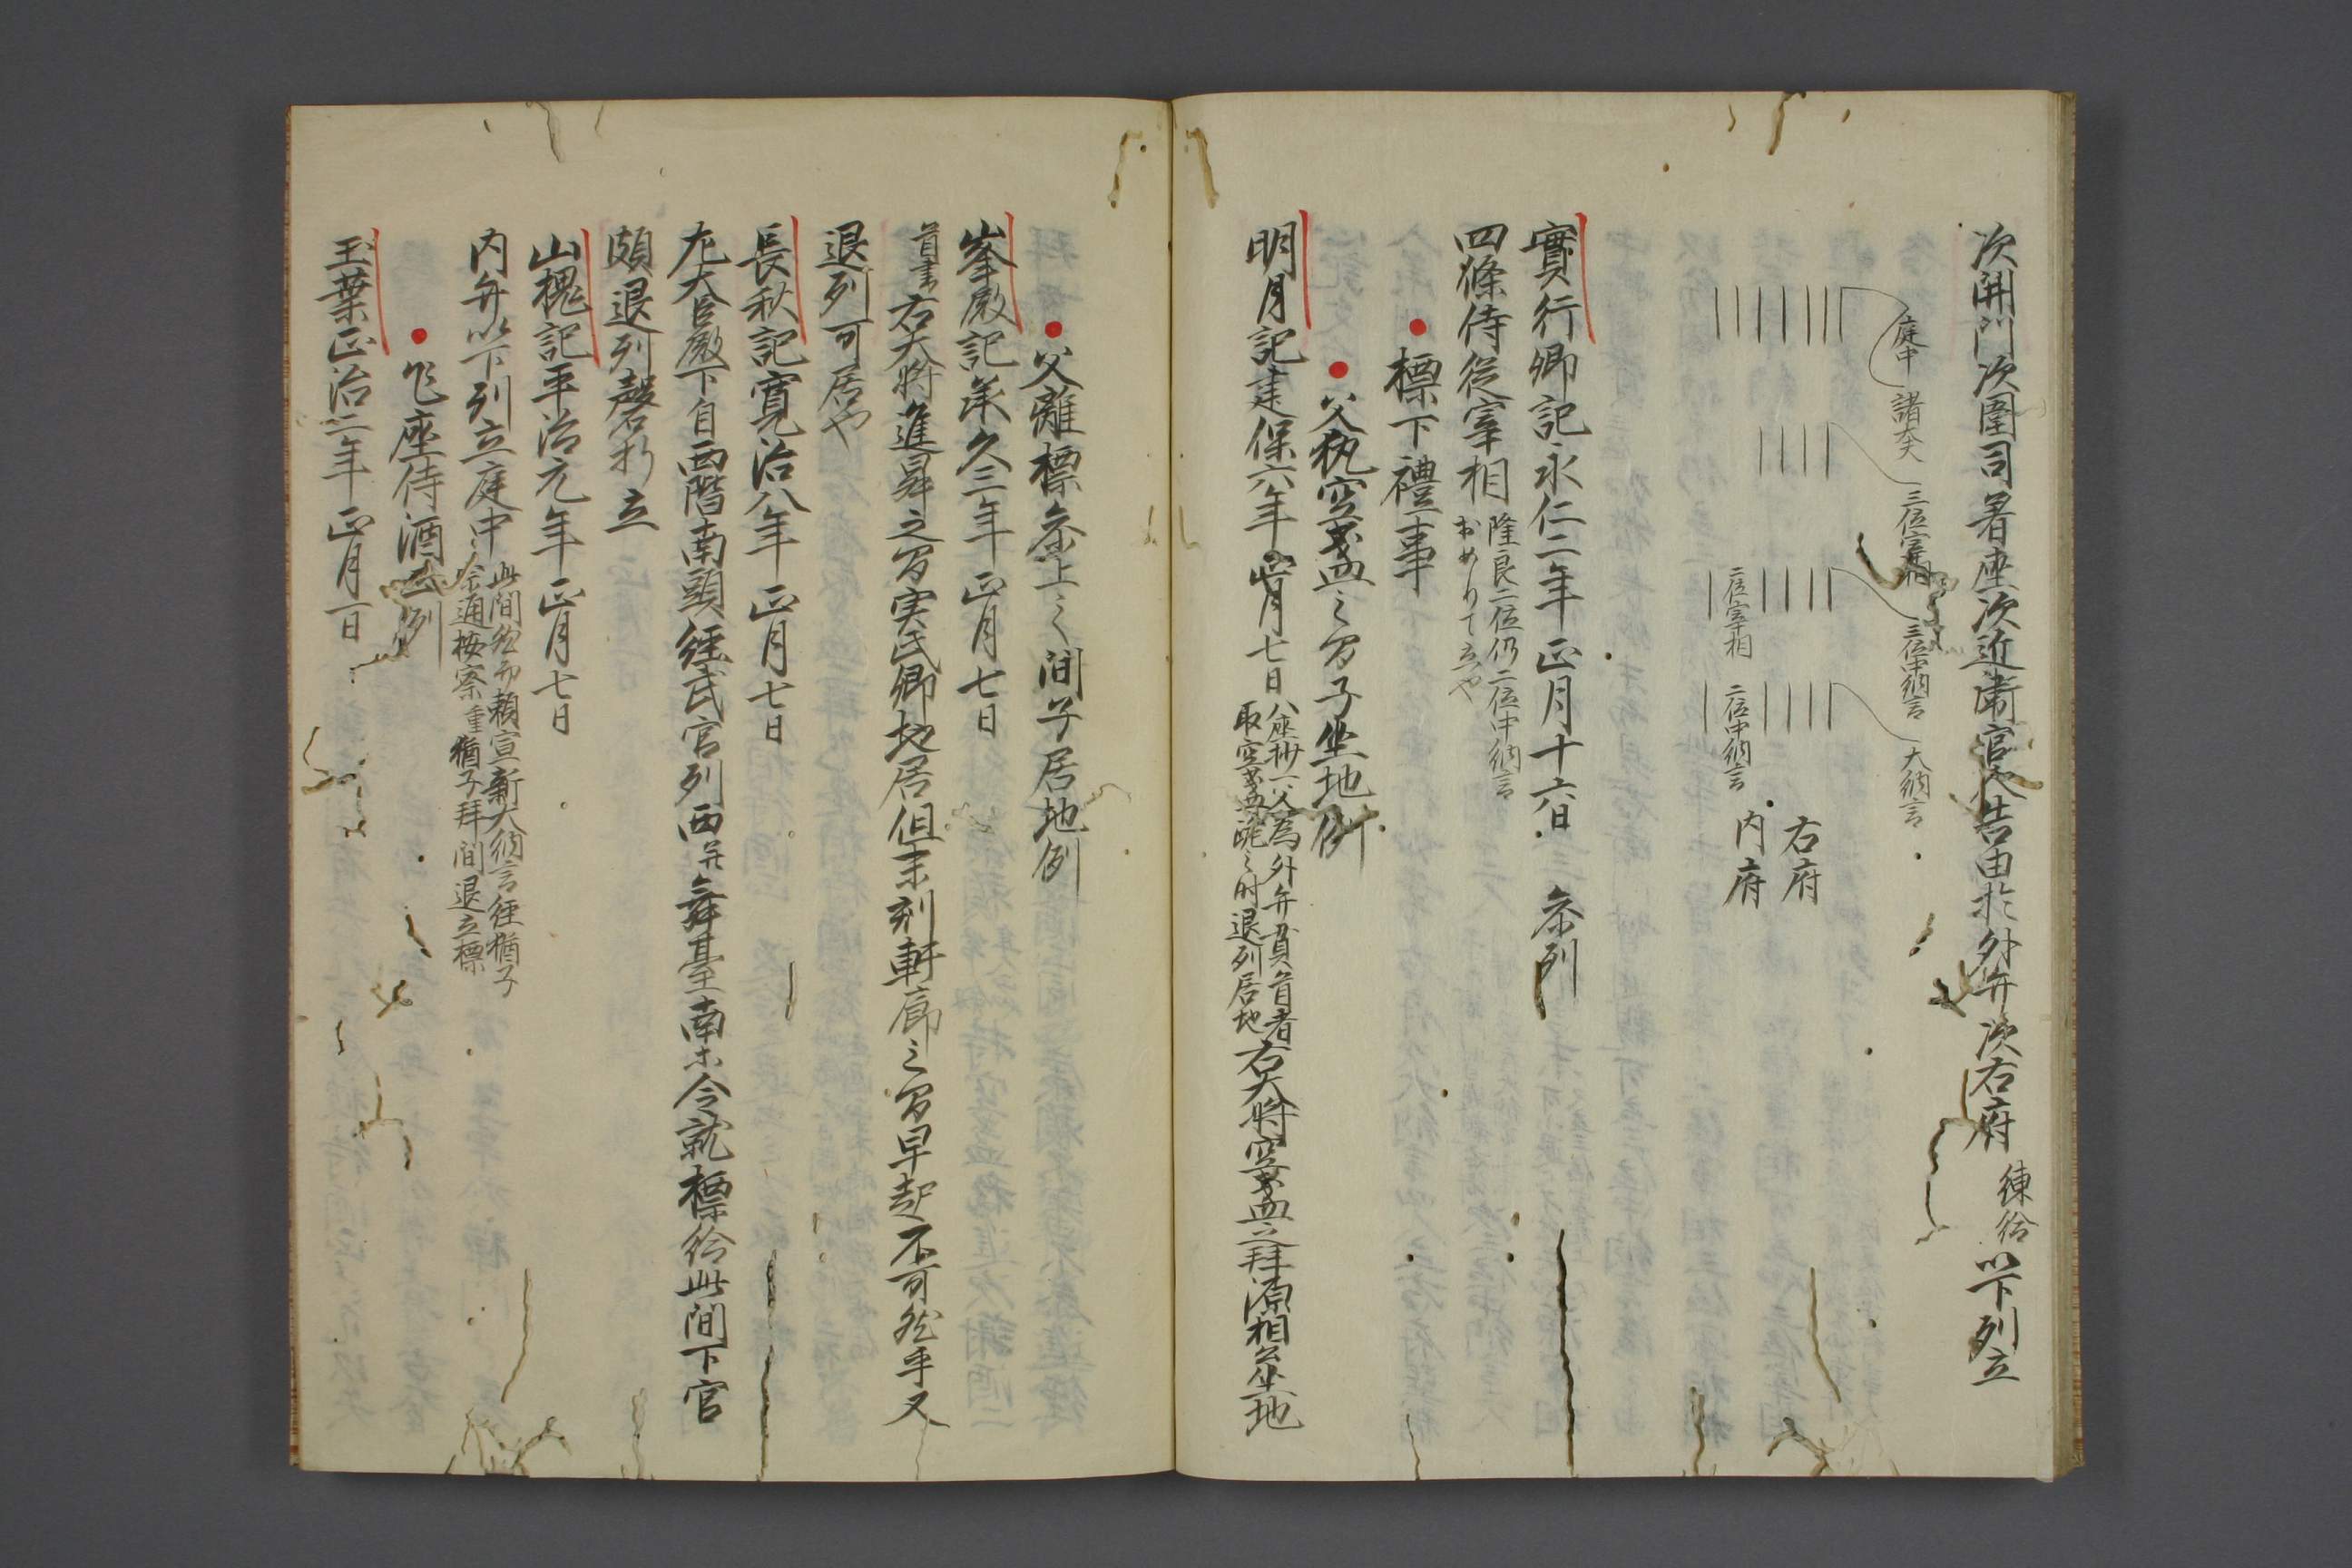 次開門次圍司着座次近衛官人告由於外弁次右府練給以下列立
庭中
諸大夫
三位宰相
三位中納言
大納言
二位宰相
二位中納言
右府
内府
實行卿記永仁二年正月十六日 参列
四條侍従宰相隆良二位仍二位中納言
標下禮事
父執空盞之間子坐地例
明月記建保六年正月七日
父為外弁貫首者
退列居地
右大将空盞之拜源相公坐地
父離標参上之間子居地例
峯殿記承久三年正月七日
首書右大将進昇之間実氏卿地居但末刻軒廊之間早起不可然乎又
退列可居や
長秋記寛治八年正月七日
左大臣殿下自西階南頭経武官列西并舞臺南末令就標給此間下官
頗退列磬折立
山槐記平治元年正月七日
内弁以下列立庭中
此間
頼宣新大納言経猶子
余通按察重猶子拜間退立標
乍座侍酒
例
玉葉正治二年正月一日